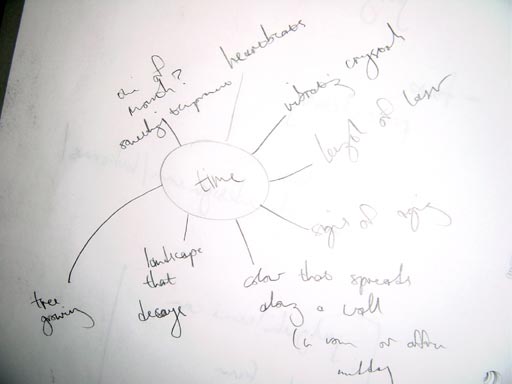 heartbeats
of
march?
vibrating crystals
length of
time
signs of aging
landscape
that
decays
tree
growing
colour that spreads
along a wall
(in room or office